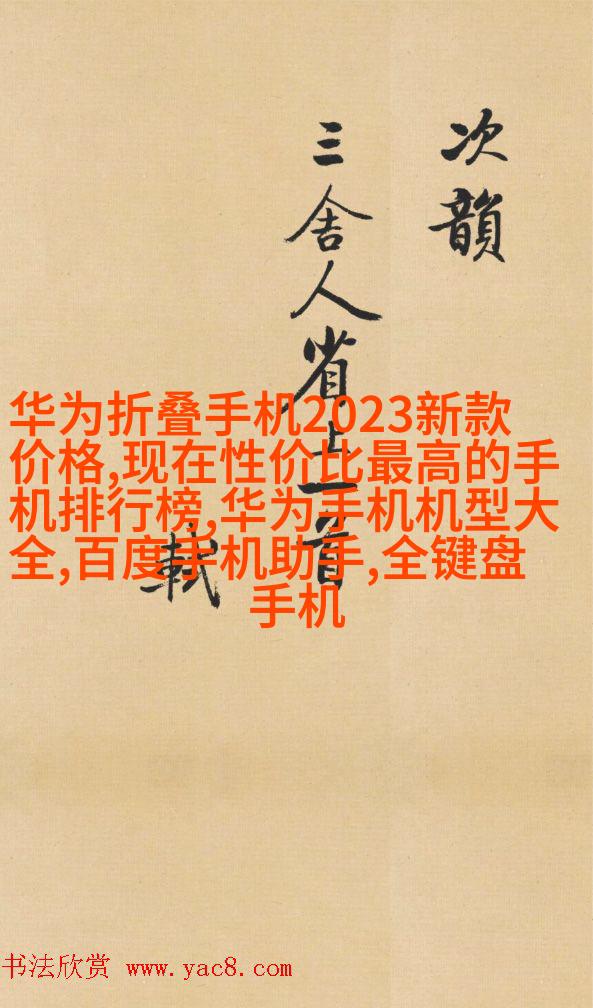 次韻
三舍人省上一首
軾
华为折叠手机2023新款
价格,现在性价比最高的手
机排行榜,华为手机机型大
全,百度手机助手,全键盘
手机
书法欣赏 www.yac8.com